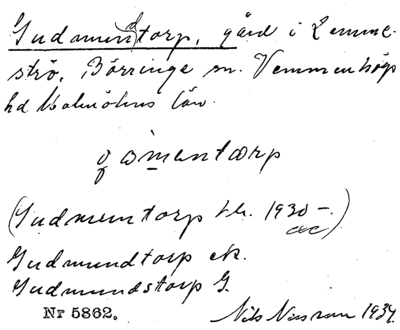 Gudmundtorp, gård i Lemme-
strö, Börringe sn. Vemmenhögs
hd Malmöhus län.
(Gudmuntorp 1930 –.)
Gudmundtorp ek.
Gudmundstorp G.
Nr 5862. Nils 1934.